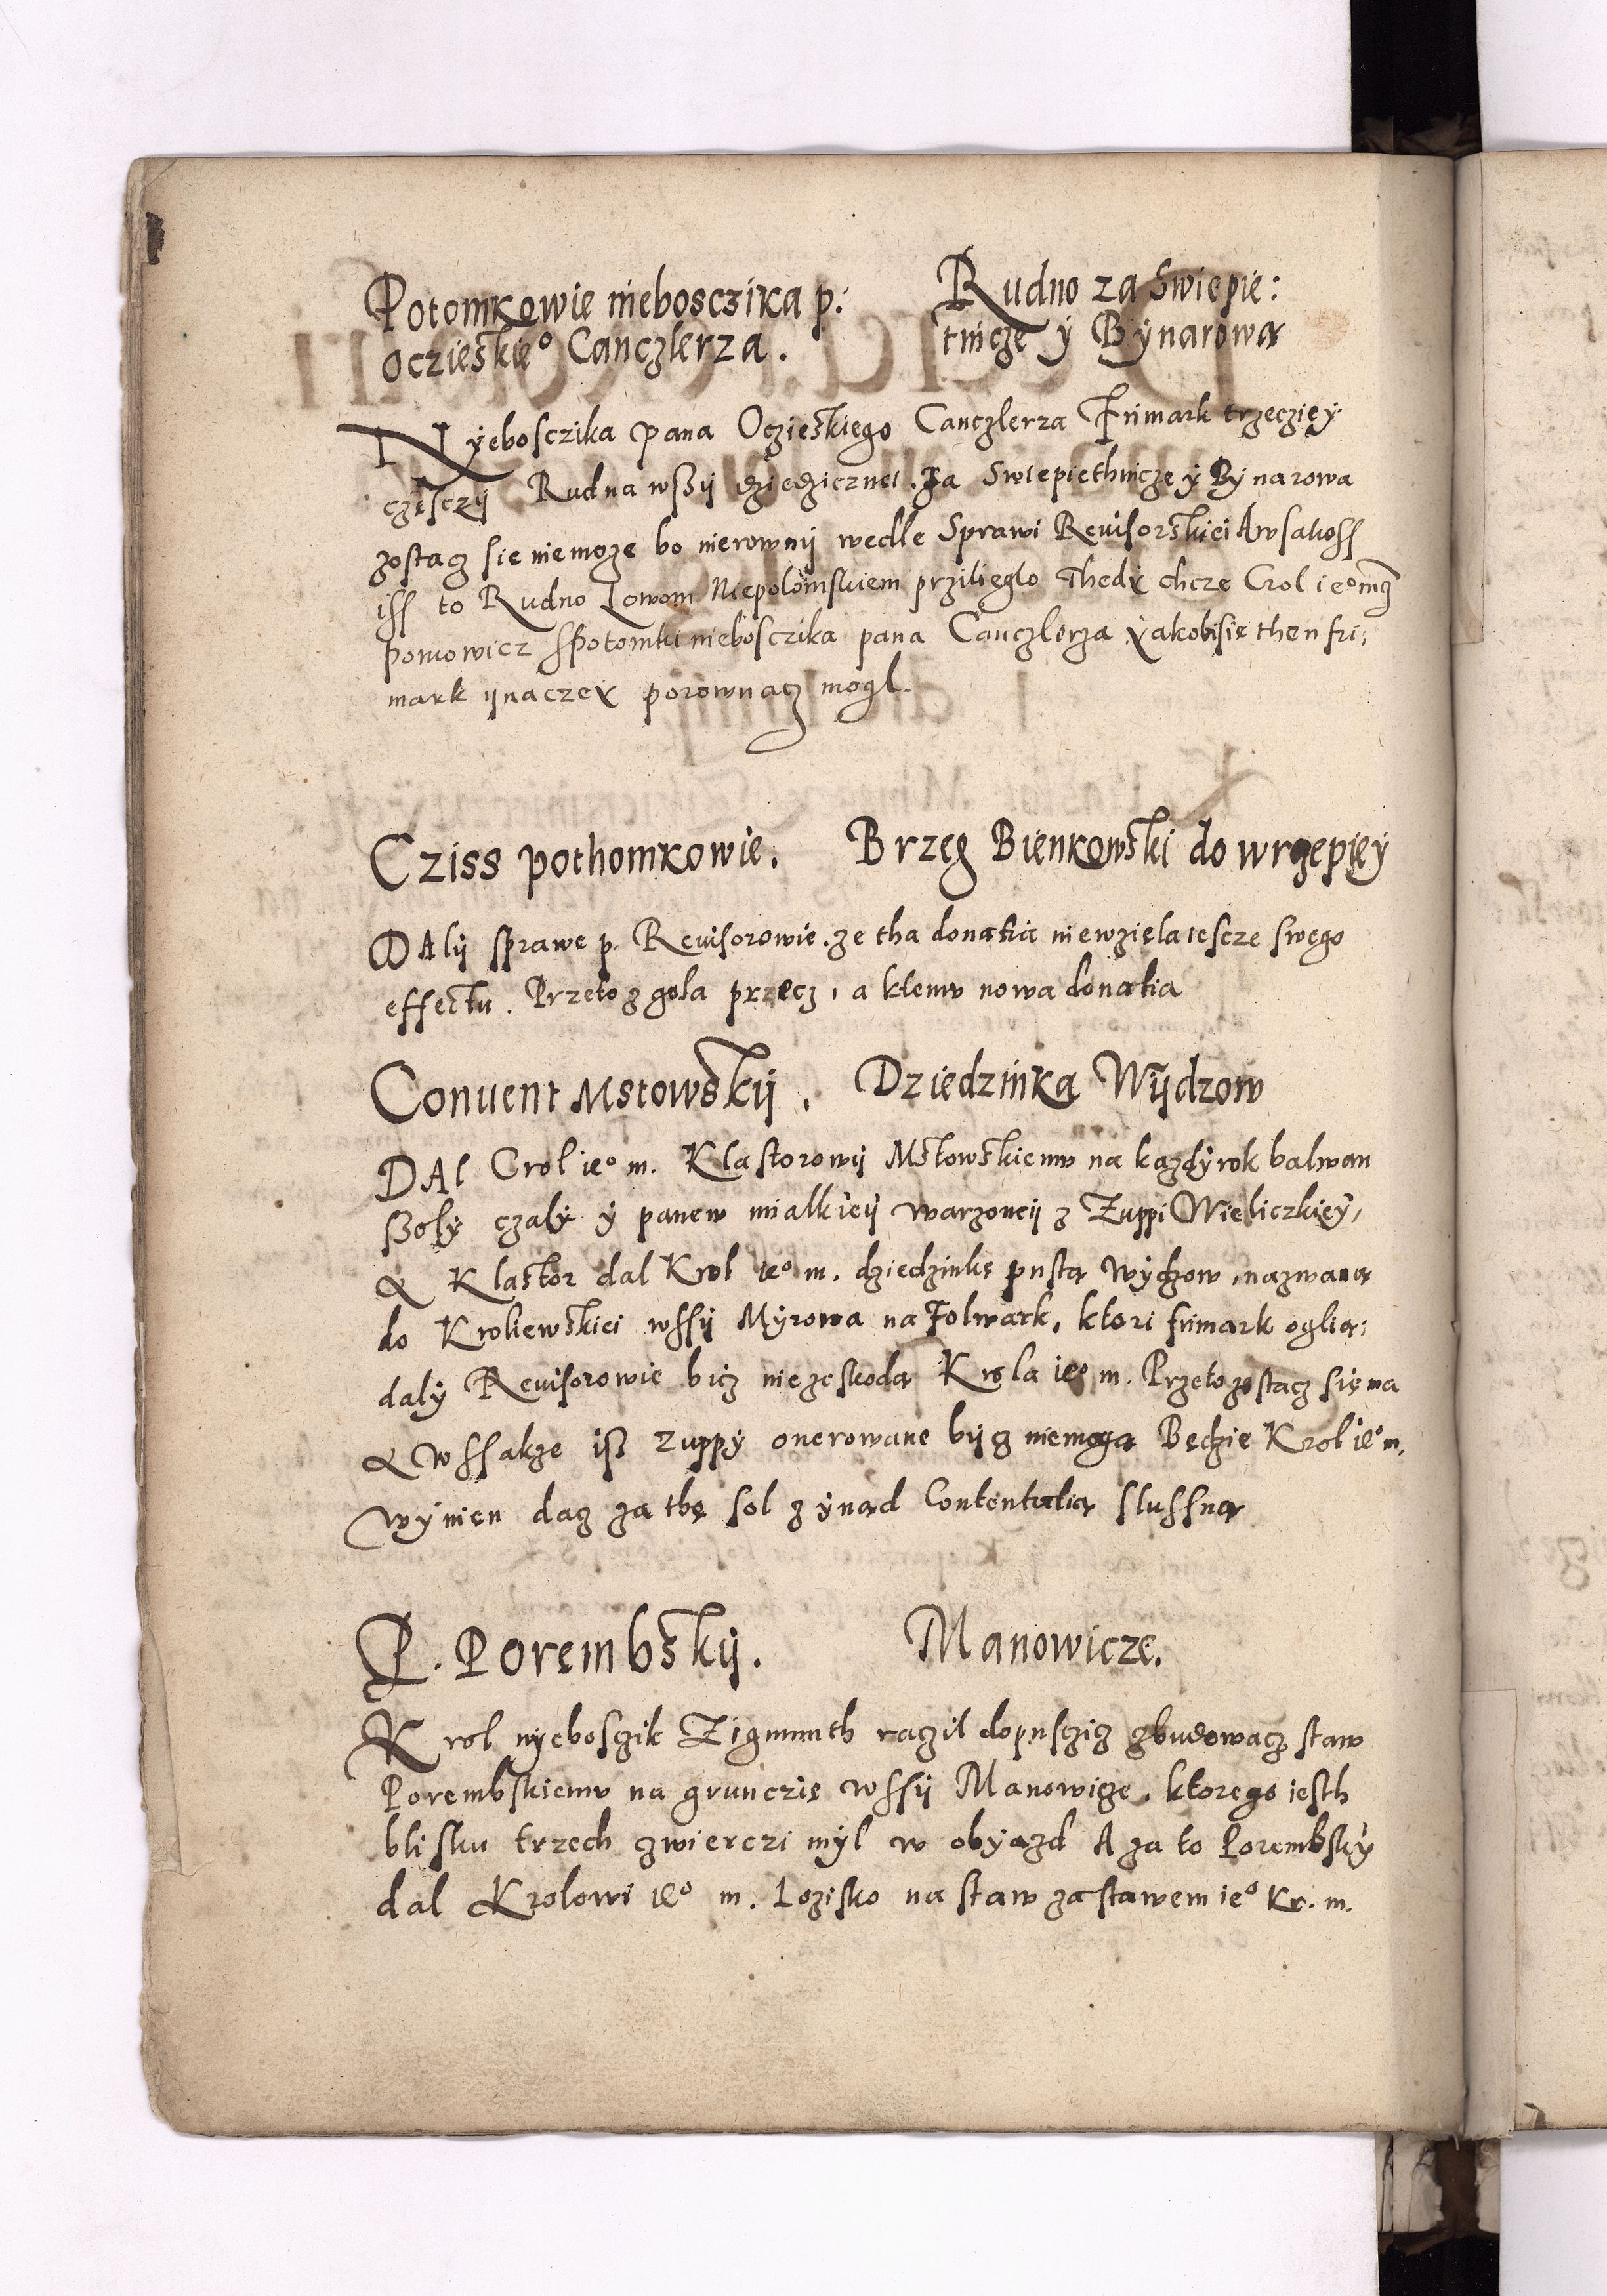 Potomkowie niebosczika p.
Oczieskieº Canczlerza.
Rudno za Swiepie:
tnicze y Bynarową
Nyebosczika pana Oczieskiego Canczlerza Frimark trzecziey
częsczij Rudna wssij dziedzicznei. Za Swiepiethnicze y Bynarowa
zostacz sie niemoze bo nierownij wedle Sprawi Revisorskiei
iss to Rudno Lowom Niepolomskiem przilieglo Thedy chcze Crol ieº mcz
pomowicz spotomki niebosczika pana Canczlerza yakobisie then fri:
mark ijnaczey porownacz mogl.
Cziss pothomkowie. Brzeg Bienkowski do wrzepięy
DAlij sprawe p. Revisorowie. ze tha donatia niewzięla iescze swego
effectu. Przeto zgola przecz, a ktemu nowa donatia
Convent Mstowskij. Dziedzinką Wijdzow
DAl Crol ieº m. Klastorowij Mstowskiemu na kazdy rok balwan
ssoly czaly y panew mialkieij warzoneij z Zuppi Wieliczkiey,
A Klastor dal Krol ieº m. dziedzinkę pustą Wydzow, nazwaną
do Kroliewskiei wssij Myrowa na Folwark, ktori frimark oglią:
daly Revisorowie bicz nie ze skodą Krola ieº m. Przeto zostacz się ma
A wssakze iss zuppy onerowane bijcz niemogą Będzie Krol ieº m.
wynien dacz za thę sol z ynąd Contentatią slussną
P. Porembskij. Manowicze.
Krol nyebosczik Zigmunth raczil dopuscicz zbudowacz staw
Porembskiemu na grunczię wssij Manowicze. ktorego iesth
blisku trzech czwierczi myl w obyazd A za to Porembsky
dal Krolowi ieº m. Lozisko na staw za stawem ieº Kr. m.